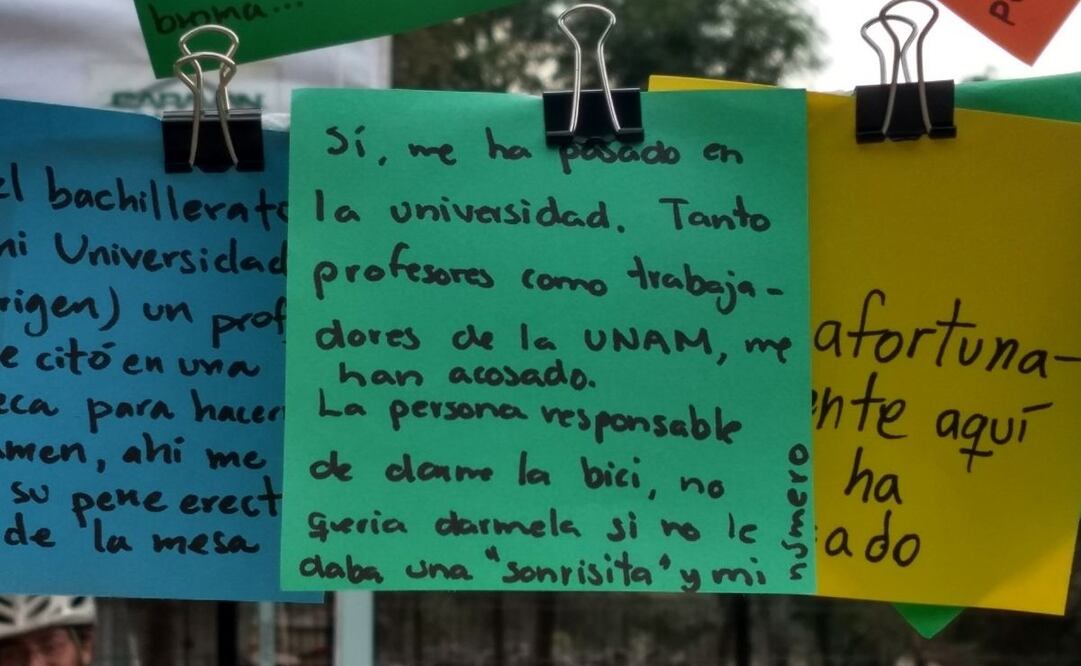 broma...
bachillerato
Universidad
un
citó en una
para hacer
ahí me
su pene
de la mesa
Sí, me ha pasado en
la universidad. Tanto
profesores como trabaja-
dores de la UNAM, me
han acosado.
La persona responsable
de darme la bici, no
queria darmela si no le
daba una "sonrisita" y mi
número
afortuna-
aquí
ha